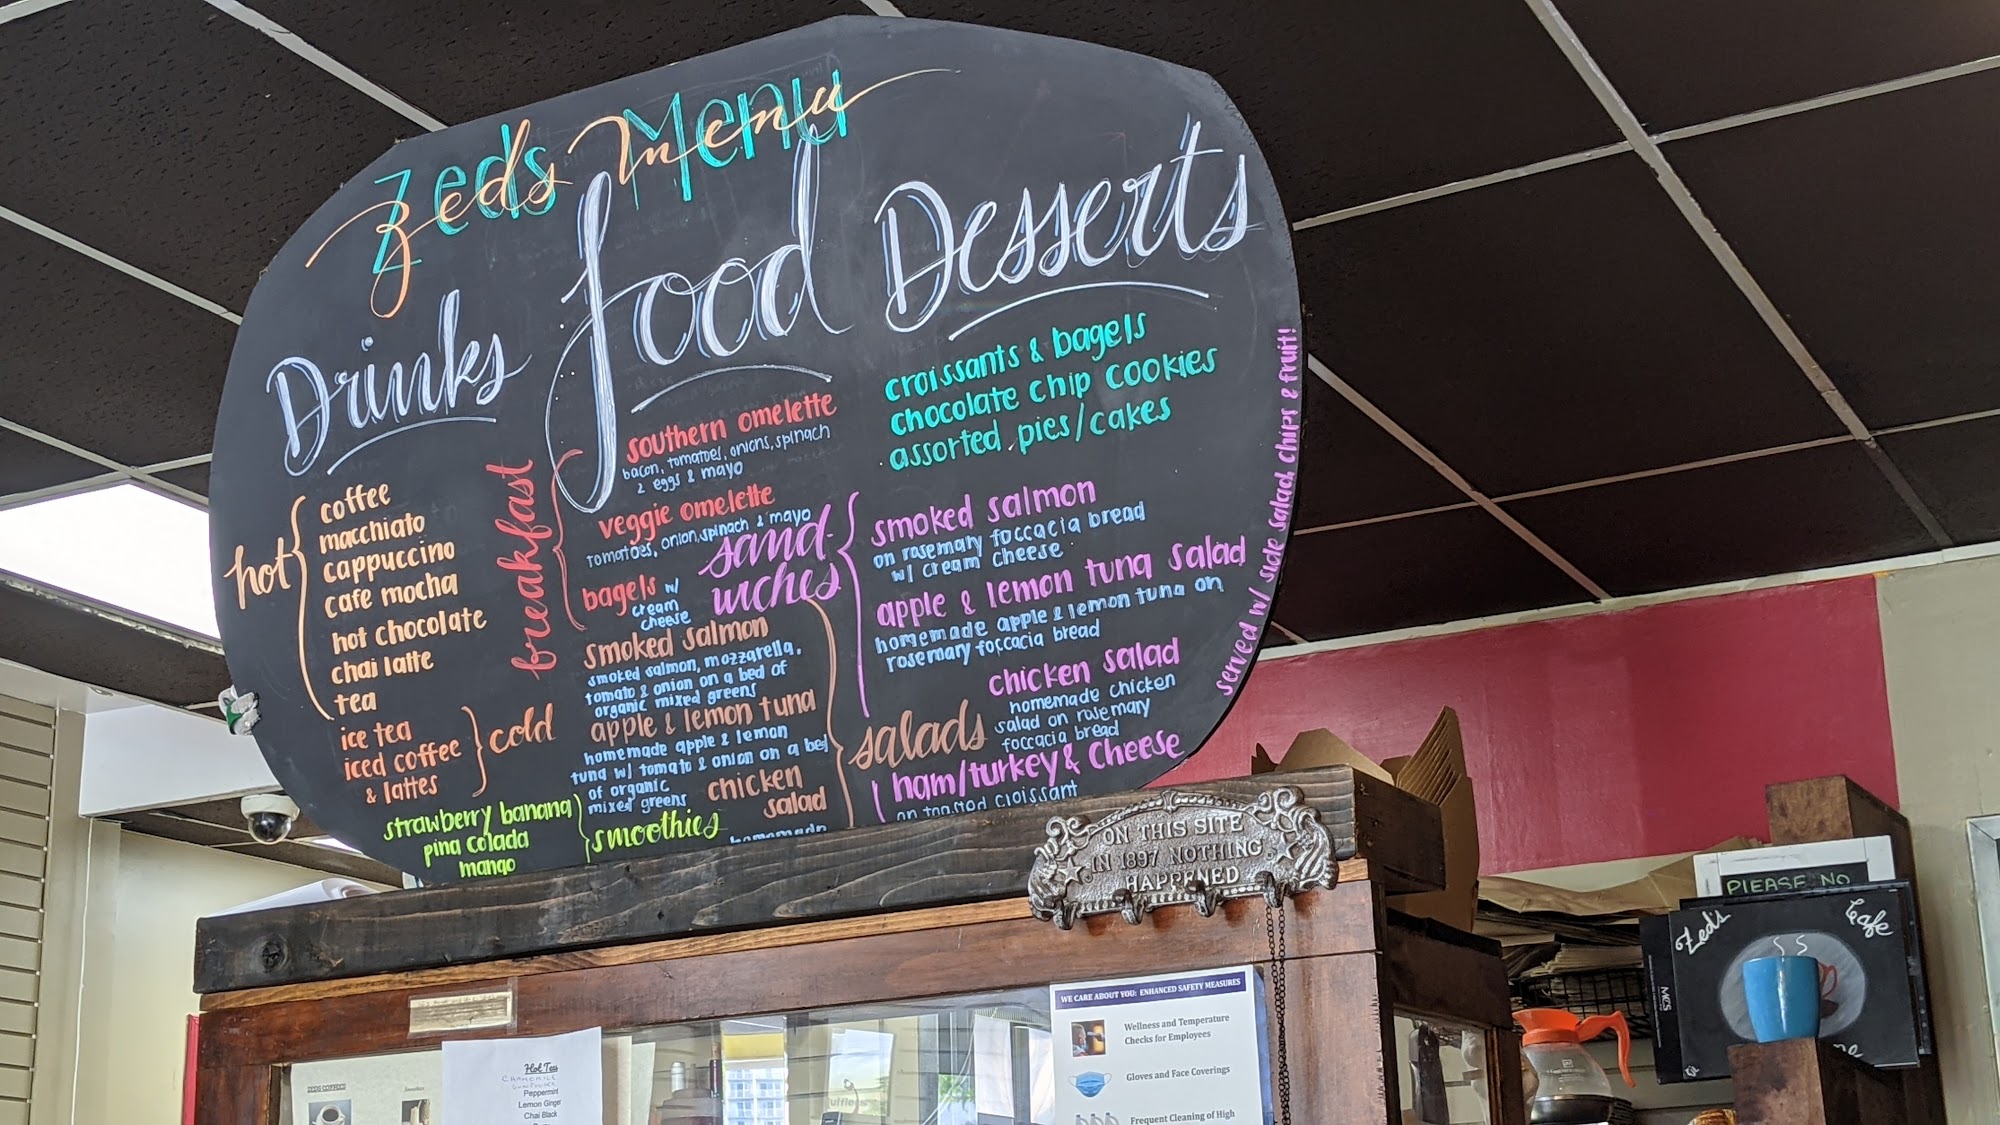 Zeds Menu
Zeds Menu
Drinks
hot
coffee
macchiato
cappuccino
cafe mocha
hot chocolate
chai latte
tea
ice tea
iced coffee
& lattes
cold
strawberry banana
pina colada
mango
smoothies
food
breakfast
southern omelette
bacon, tomatoes, onions, spinach
2 eggs & mayo
veggie omelette
tomatoes, onion, spinach & mayo
bagels w/
cream
cheese
smoked salmon
smoked salmon, mozzarella,
tomato & onion on a bed of
organic mixed greens
apple & lemon tuna
homemade apple & lemon
tuna w/ tomato & onion on a bed
of organic
mixed greens
chicken
salad
homemade
salads
Desserts
croissants & bagels
chocolate chip cookies
assorted pies/cakes
sand-
wiches
smoked salmon
on rosemary foccacia bread
w/ cream cheese
apple & lemon tuna salad
homemade apple & lemon tuna on
rosemary foccacia bread
chicken salad
homemade chicken
salad on rosemary
foccacia bread
ham/turkey & cheese
on toasted croissant
served w/ side salad, chips & fruit!
ON THIS SITE
IN 1897 NOTHING
HAPPENED
PLEASE NO
Zed's Cafe
MCS
WE CARE ABOUT YOU: ENHANCED SAFETY MEASURES
Wellness and Temperature
Checks for Employees
Gloves and Face Coverings
Frequent Cleaning of High
ZEDS COFFEES
Hot Tea
CHAMOMILE
Peppermint
Lemon Ginger
Chai Black